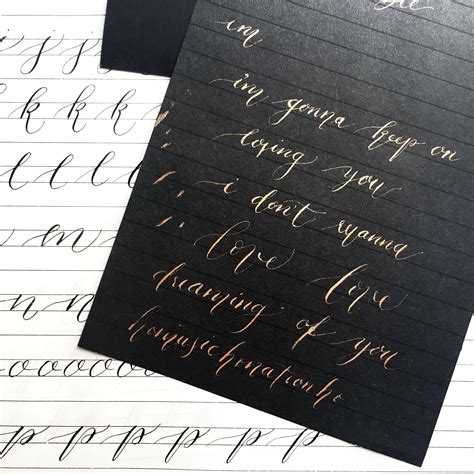 k k k k
l l l l
m
n n
o o o o o o o
p p p p p p p
im
im gonna keep on
loving you
i don't wanna
love love
dreaming of you